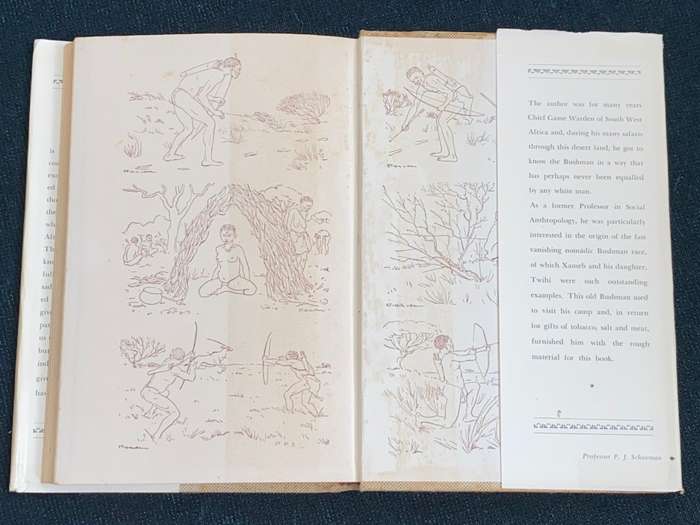 The author was for many years
Chief Game Warden of South West
Africa and, during his many safaris
through this desert land, he got to
know the Bushman in a way that
has perhaps never been equalled
by any white man.
As a former Professor in Social
Anthropology, he was particularly
interested in the origin of the fast
vanishing nomadic Bushman race,
of which Xameb and his daughter,
Twihi were such outstanding
examples. This old Bushman used
to visit his camp and, in return
for gifts of tobacco, salt and meat,
furnished him with the rough
material for this book.
Professor P. J. Schoeman